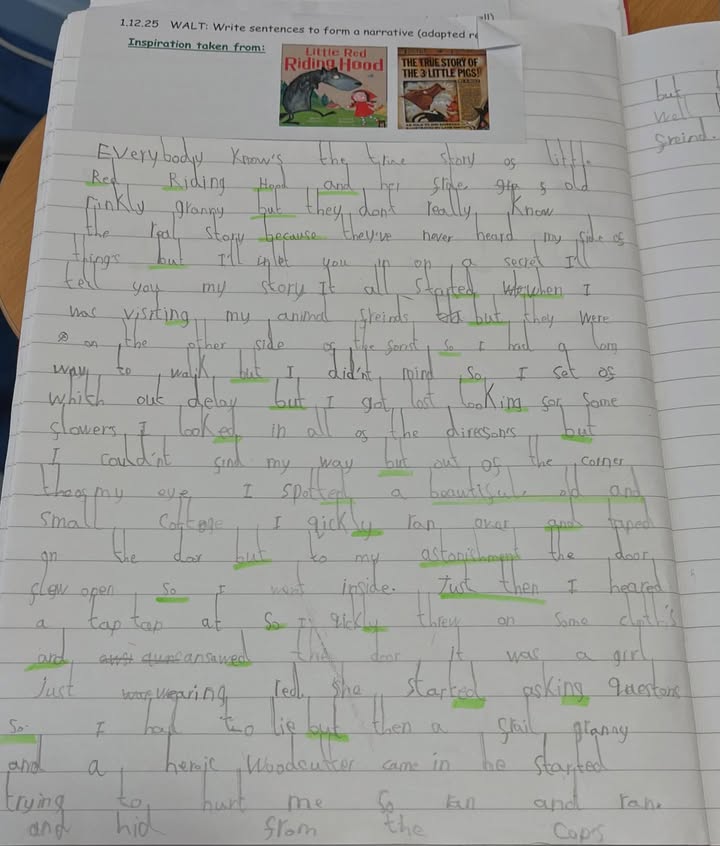 1.12.25 WALT: Write sentences to form a narrative (adapted re
all)
Inspiration taken from:
Little Red
Riding Hood
THE TRUE STORY OF
THE 3 LITTLE PIGS!
but
well
freind.
EVerybody Know's the true story of little
Red Riding Hood and her old
rinkly granny but they dont really Know
the real story because they've never heard my side of
thing's but I'll let you in on a secret I'll
tell you my story It all started when I
was visiting my animal freinds but they were
on the other side of the forist so I had a lom
way to walk but I did'nt mind so I set of
which out delay but I got lost looking for some
flowers I looked in all of the diresons but
I could'nt find my way but out of the corner
my eye I spotted a beautiful old and
small Cottege I qickly ran over and taped
on the dor but to my astonishment the door
flew open so I went inside. Just then I heared
a tap tap at So I qickly threy on some cloth's
and ansawed the door It was a girl
just wearing red she started asking questons
So I had to lie but then a frail granny
and a heroic Woodcutter came in he started
trying to hurt me So ran and ran
and hid from the cops